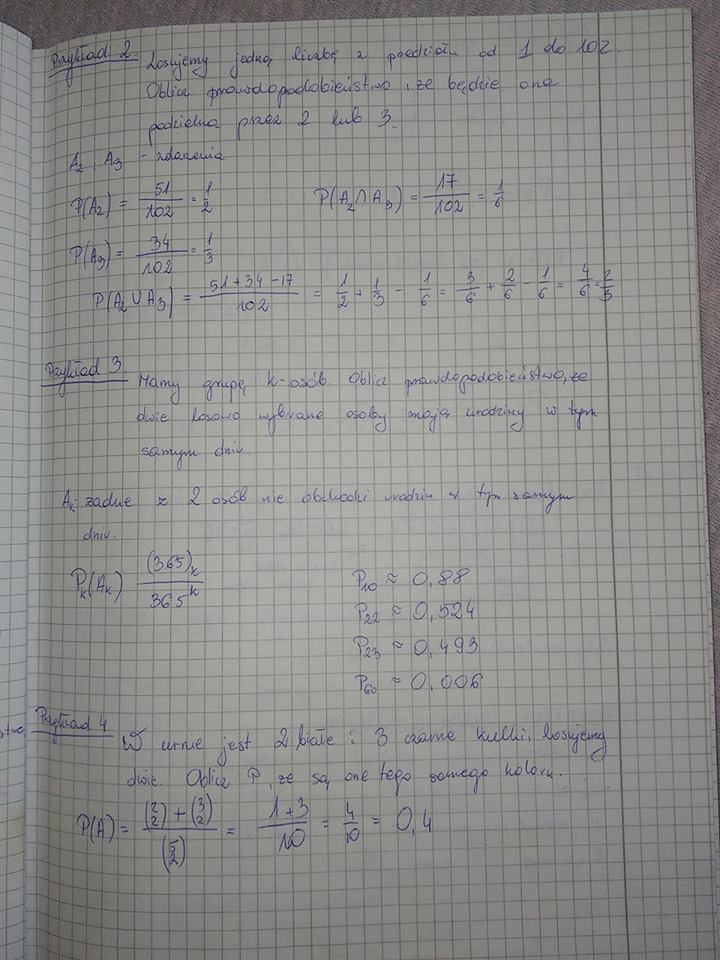 Przykład 2. Losujemy jedną liczbę z przedziału od 1 do 102.
Oblicz prawdopodobieństwo, że będzie ona
podzielna przez 2 lub 3.
A₂, A₃ - zdarzenia
P(A₂) = 51/102 = 1/2 P(A₂∩A₃) = 17/102 = 1/6
P(A₃) = 34/102 = 1/3
P(A₂∪A₃) = (51+34-17)/102 = 1/2 + 1/3 - 1/6 = 3/6 + 2/6 - 1/6 = 4/6 = 2/3
Przykład 3. Mamy grupę k-osób. Oblicz prawdopodobieństwo, że
dwie losowo wybrane osoby mają urodziny w tym
samym dniu.
Aₖ- żadne z 2 osób nie obchodzi urodzin w tym samym
dniu.
Pₖ(Aₖ) (365)ₖ/365ᵏ P₁₀ ≈ 0,88
P₂₂ ≈ 0,524
P₂₃ ≈ 0,493
P₆₀ ≈ 0,006
Przykład 4 W urnie jest 2 białe i 3 czarne kulki. Losujemy
dwie. Oblicz P, że są one tego samego koloru.
P(A) = ((2 2) + (3 2))/(5 2) = (1+3)/10 = 4/10 = 0,4